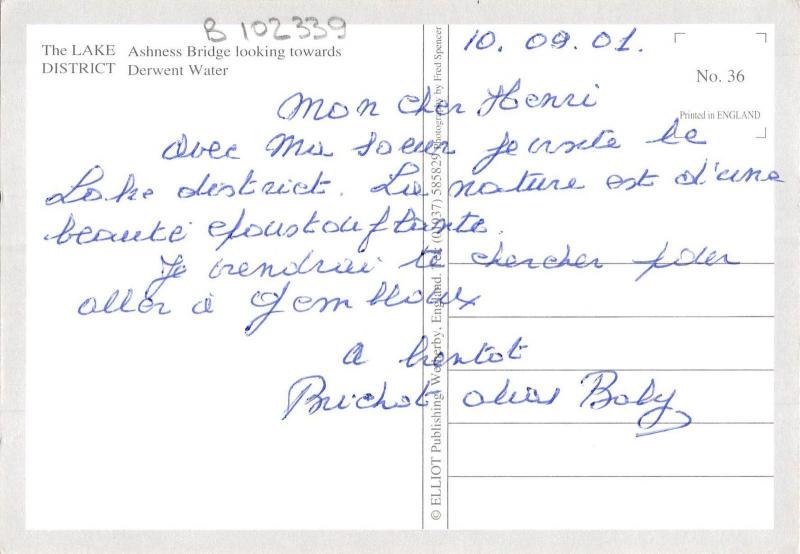 B 102339
The LAKE DISTRICT
Ashness Bridge looking towards
Derwent Water
10. 09. 01.
No. 36
Printed in ENGLAND
Mon cher Henri
avec Ma soeur je visite le
Lake district. La nature est d'une
beauté epoustouflante.
Je viendrai te chercher pour
aller à Gembloux
a bientot
Brichot alias Boby
© ELLIOT Publishing, Wetherby, England. Tel: (01937) 585829 Photography by Fred Spencer